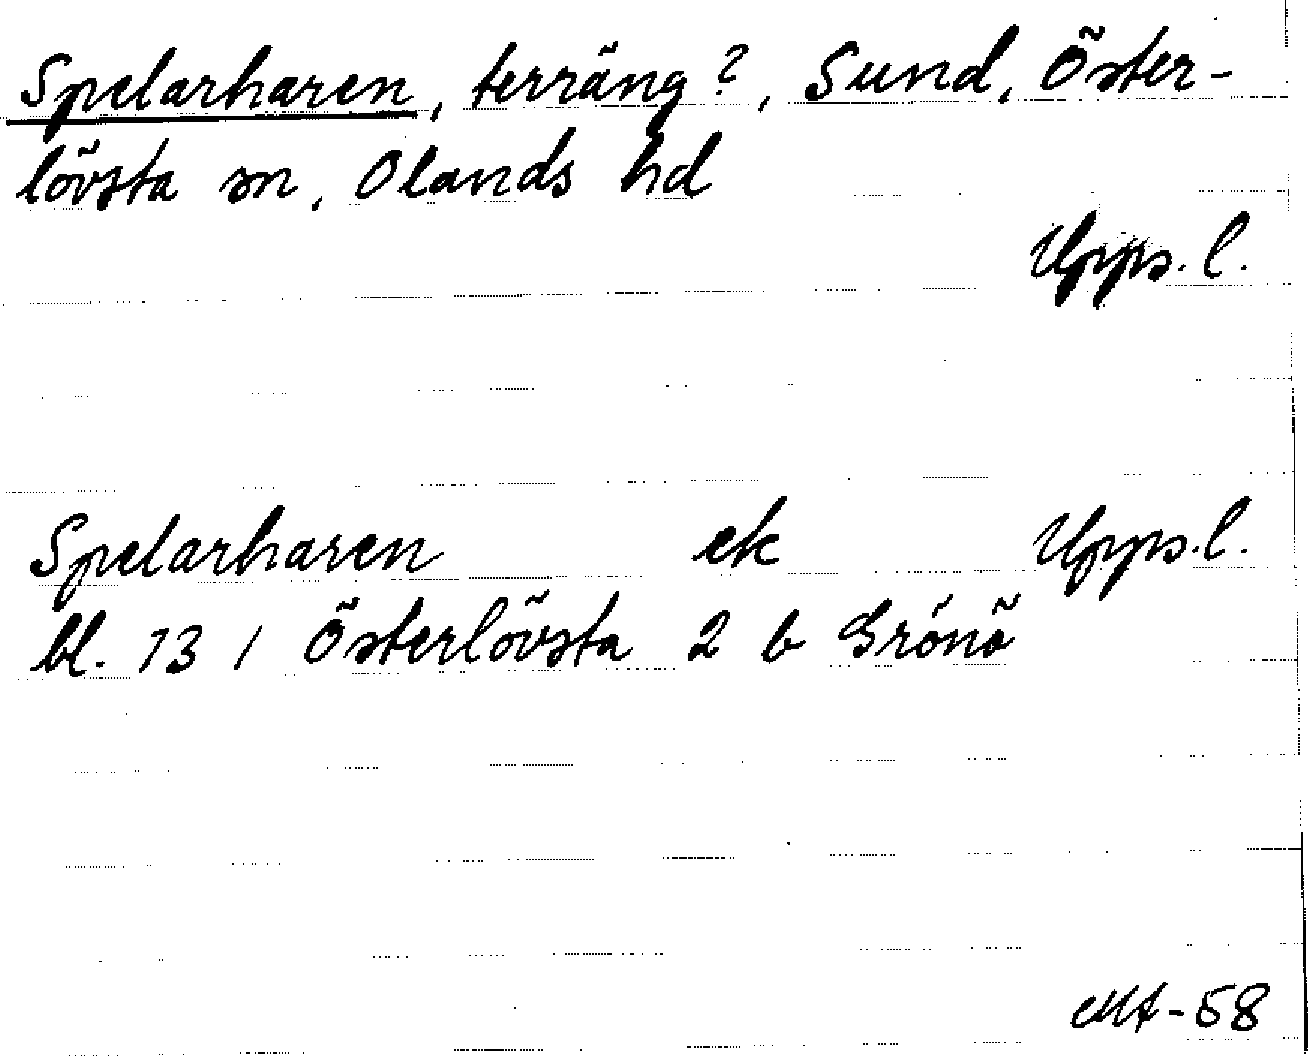 Spelarharen, terräng?, Sund, Öster-
lövsta sn, Olands hd
Upps. l.
Spelarharen ek Upps. l.
bl. 13 / Österlövsta 2 b Grönö
MA-58